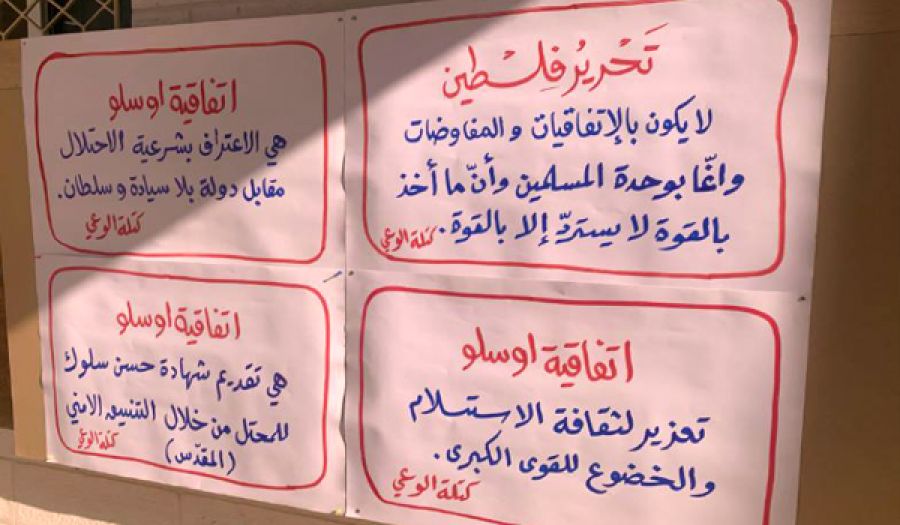 تَحْريرُ فِلِسْطين
لا يكون بالإتفاقيات والمفاوضات
وإنّما بوحدة المسلمين وأنّ ما أخذ
بالقوة لا يستردّ إلا بالقوة.
كتلة الوعي
اتفاقية اوسلو
هي الاعتراف بشرعية الاحتلال
مقابل دولة بلا سيادة وسلطان.
كتلة الوعي
اتفاقية اوسلو
تعزيز لثقافة الاستسلام
والخضوع للقوى الكبرى.
كتلة الوعي
اتفاقية اوسلو
هي تقديم شهادة حسن سلوك
للمحتل من خلال التنسيق الامني
(المقدّس)
كتلة الوعي